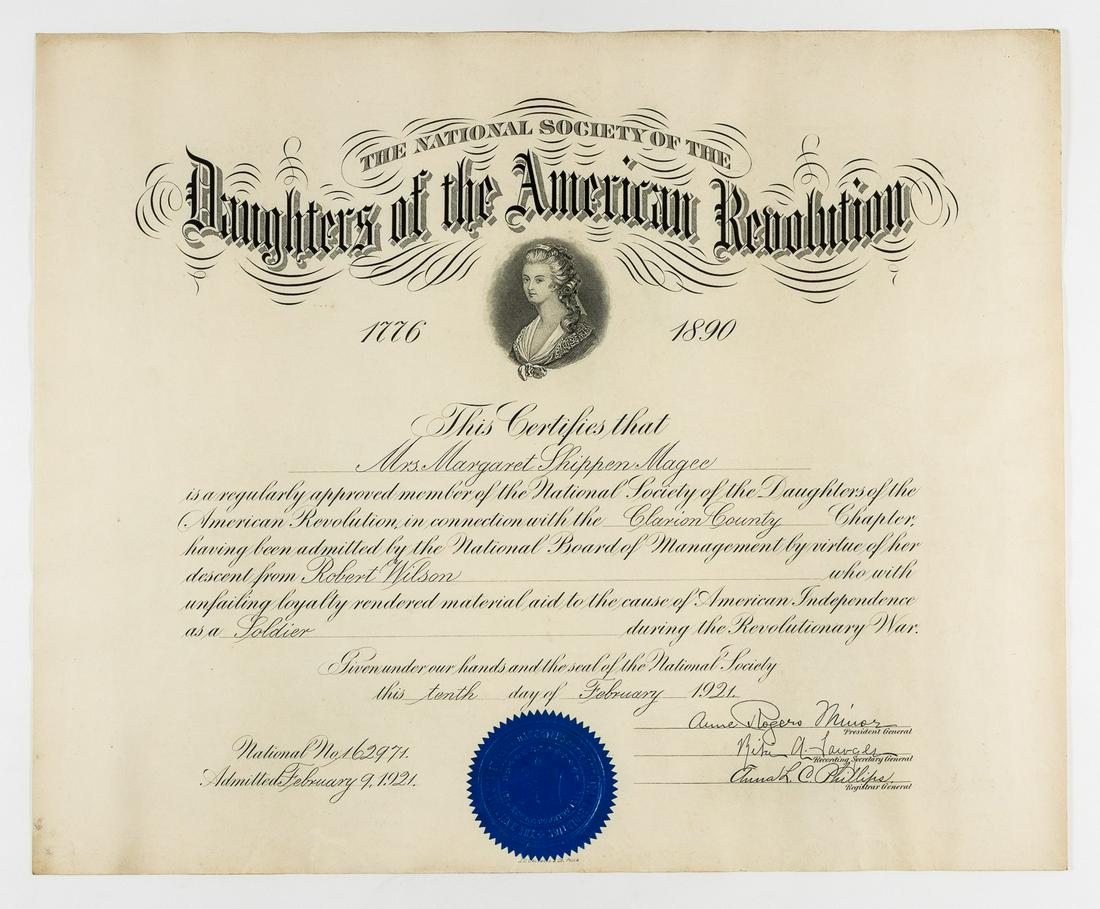 THE NATIONAL SOCIETY OF THE
Daughters of the American Revolution
1776 1890
This Certifies that
Mrs. Margaret Shippen Magee
is a regularly approved member of the National Society of the Daughters of the
American Revolution, in connection with the Clarion County Chapter,
having been admitted by the National Board of Management by virtue of her
descent from Robert Wilson who with
unfailing loyalty rendered material aid to the cause of American Independence
as a Soldier during the Revolutionary War.
Given under our hands and the seal of the National Society
this tenth day of February 1921.
Anne Rogers Minor
President General
A.
Recording Secretary General
Anna L. C. Phillips.
Registrar General
National No. 162971.
Admitted February 9, 1921.